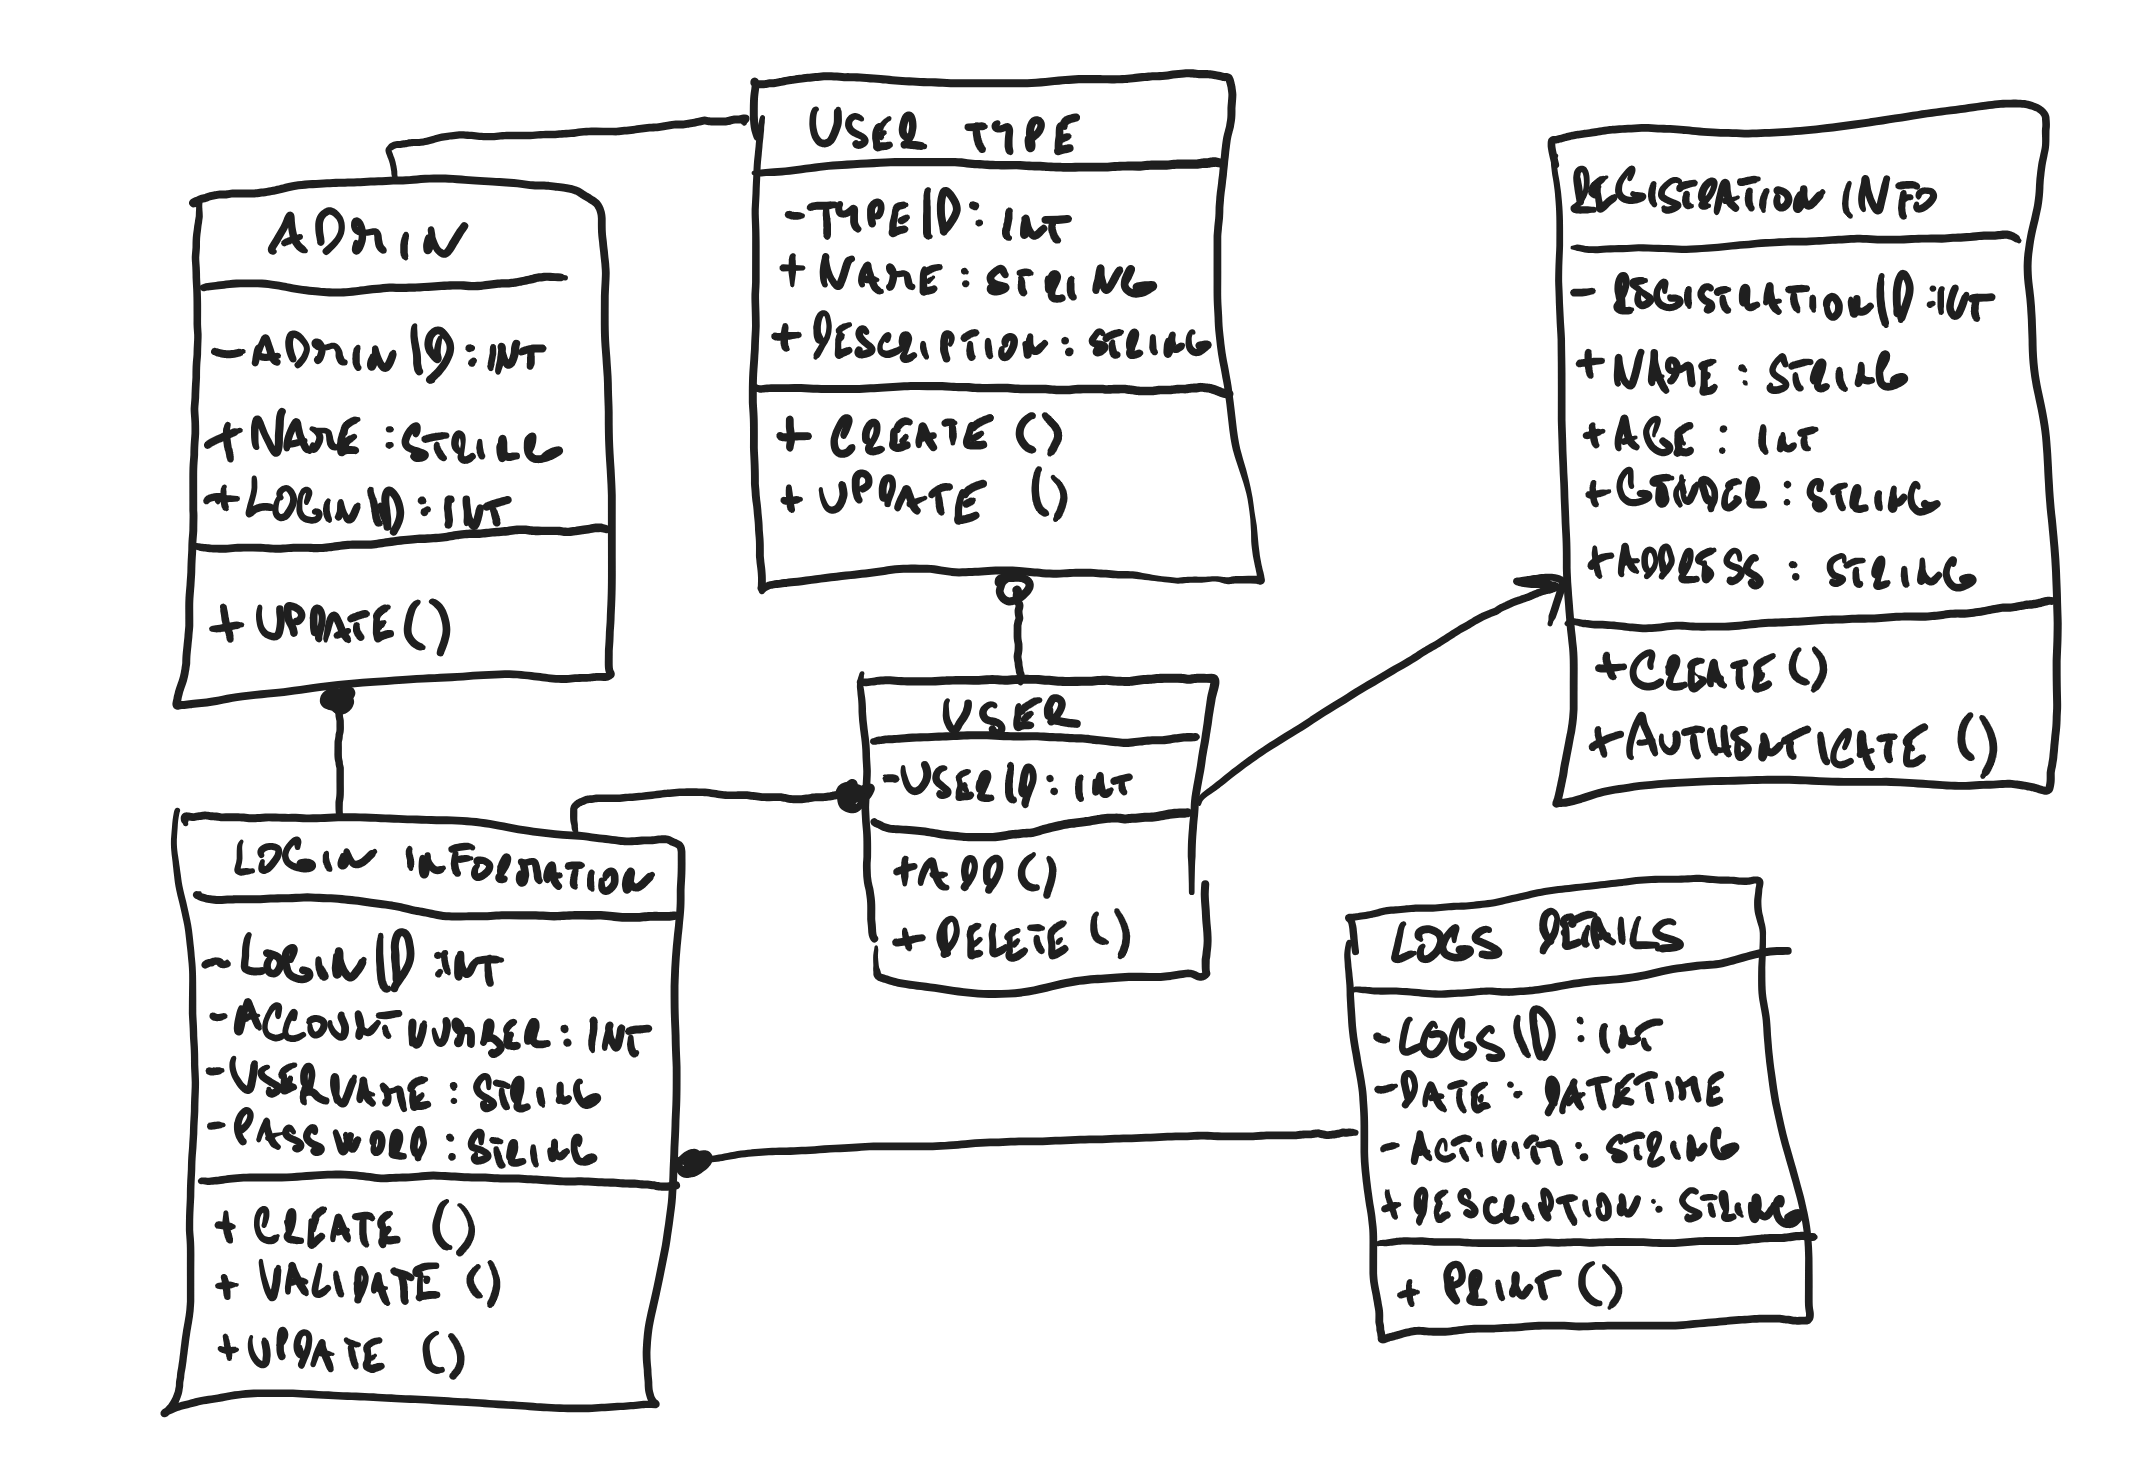 ADMIN
- ADMIN ID : INT
+ NAME : STRING
+ LOGIN ID : INT
+ UPDATE ()
USER TYPE
- TYPE ID : INT
+ NAME : STRING
+ DESCRIPTION : STRING
+ CREATE ()
+ UPDATE ()
REGISTRATION INFO
- REGISTRATION ID : INT
+ NAME : STRING
+ AGE : INT
+ GENDER : STRING
+ ADDRESS : STRING
+ CREATE ()
+ AUTHENTICATE ()
USER
- USER ID : INT
+ ADD ()
+ DELETE ()
LOGIN INFORMATION
- LOGIN ID : INT
- ACCOUNT NUMBER : INT
- USERNAME : STRING
- PASSWORD : STRING
+ CREATE ()
+ VALIDATE ()
+ UPDATE ()
LOGS DETAILS
- LOGS ID : INT
- DATE : DATETIME
- ACTIVITY : STRING
+ DESCRIPTION : STRING
+ PRINT ()